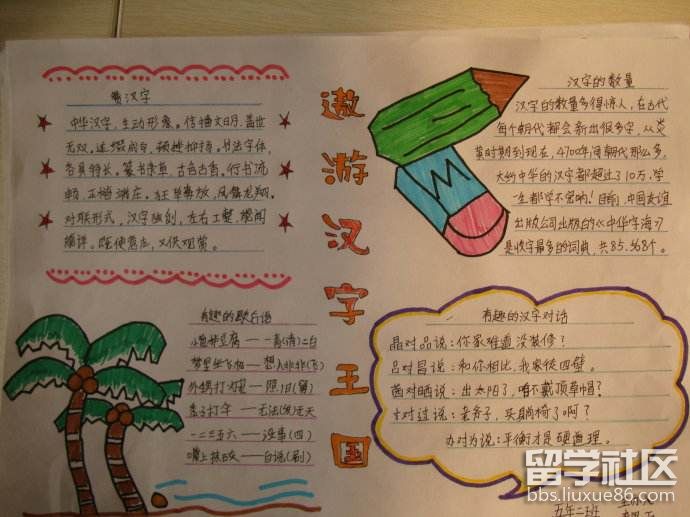 赞汉字
中华汉字，生动形意。信播文明，盖世
无双。
各具特长。篆书隶草，古色古香。行书流
畅，正楷端庄。狂草奔放，凤舞龙翔。
对联形式，汉字独创，左右工整，横阔
遨游汉字王国
汉字的数量
汉字的数量多得惊人，在古代
每个朝代都会新出很多字，从炎
黄时期到现在，4700年间朝代那么多，
大约中华的汉字都超过了10万，学
一生都学不完啊！目前，中国友谊
出版公司出版的《中华字海》
是收字最多的词典，共85.568个。
有趣的歇后语
小葱拌豆腐——一青(清)二白
梦里坐飞机——想入非非(飞)
外甥打灯笼——照旧(舅)
秃子打伞——无法(发)无天
一二三五六——没事(四)
嘴上抹石灰——白说(刷)
有趣的汉字对话
晶对品说：你家难道没装修？
吕对昌说：和你相比，我家徒四壁。
茜对晒说：出太阳了，咱不戴顶草帽？
办对为说：平衡才是硬道理。
五年二班
留学社区
bbs.liuxue86.com